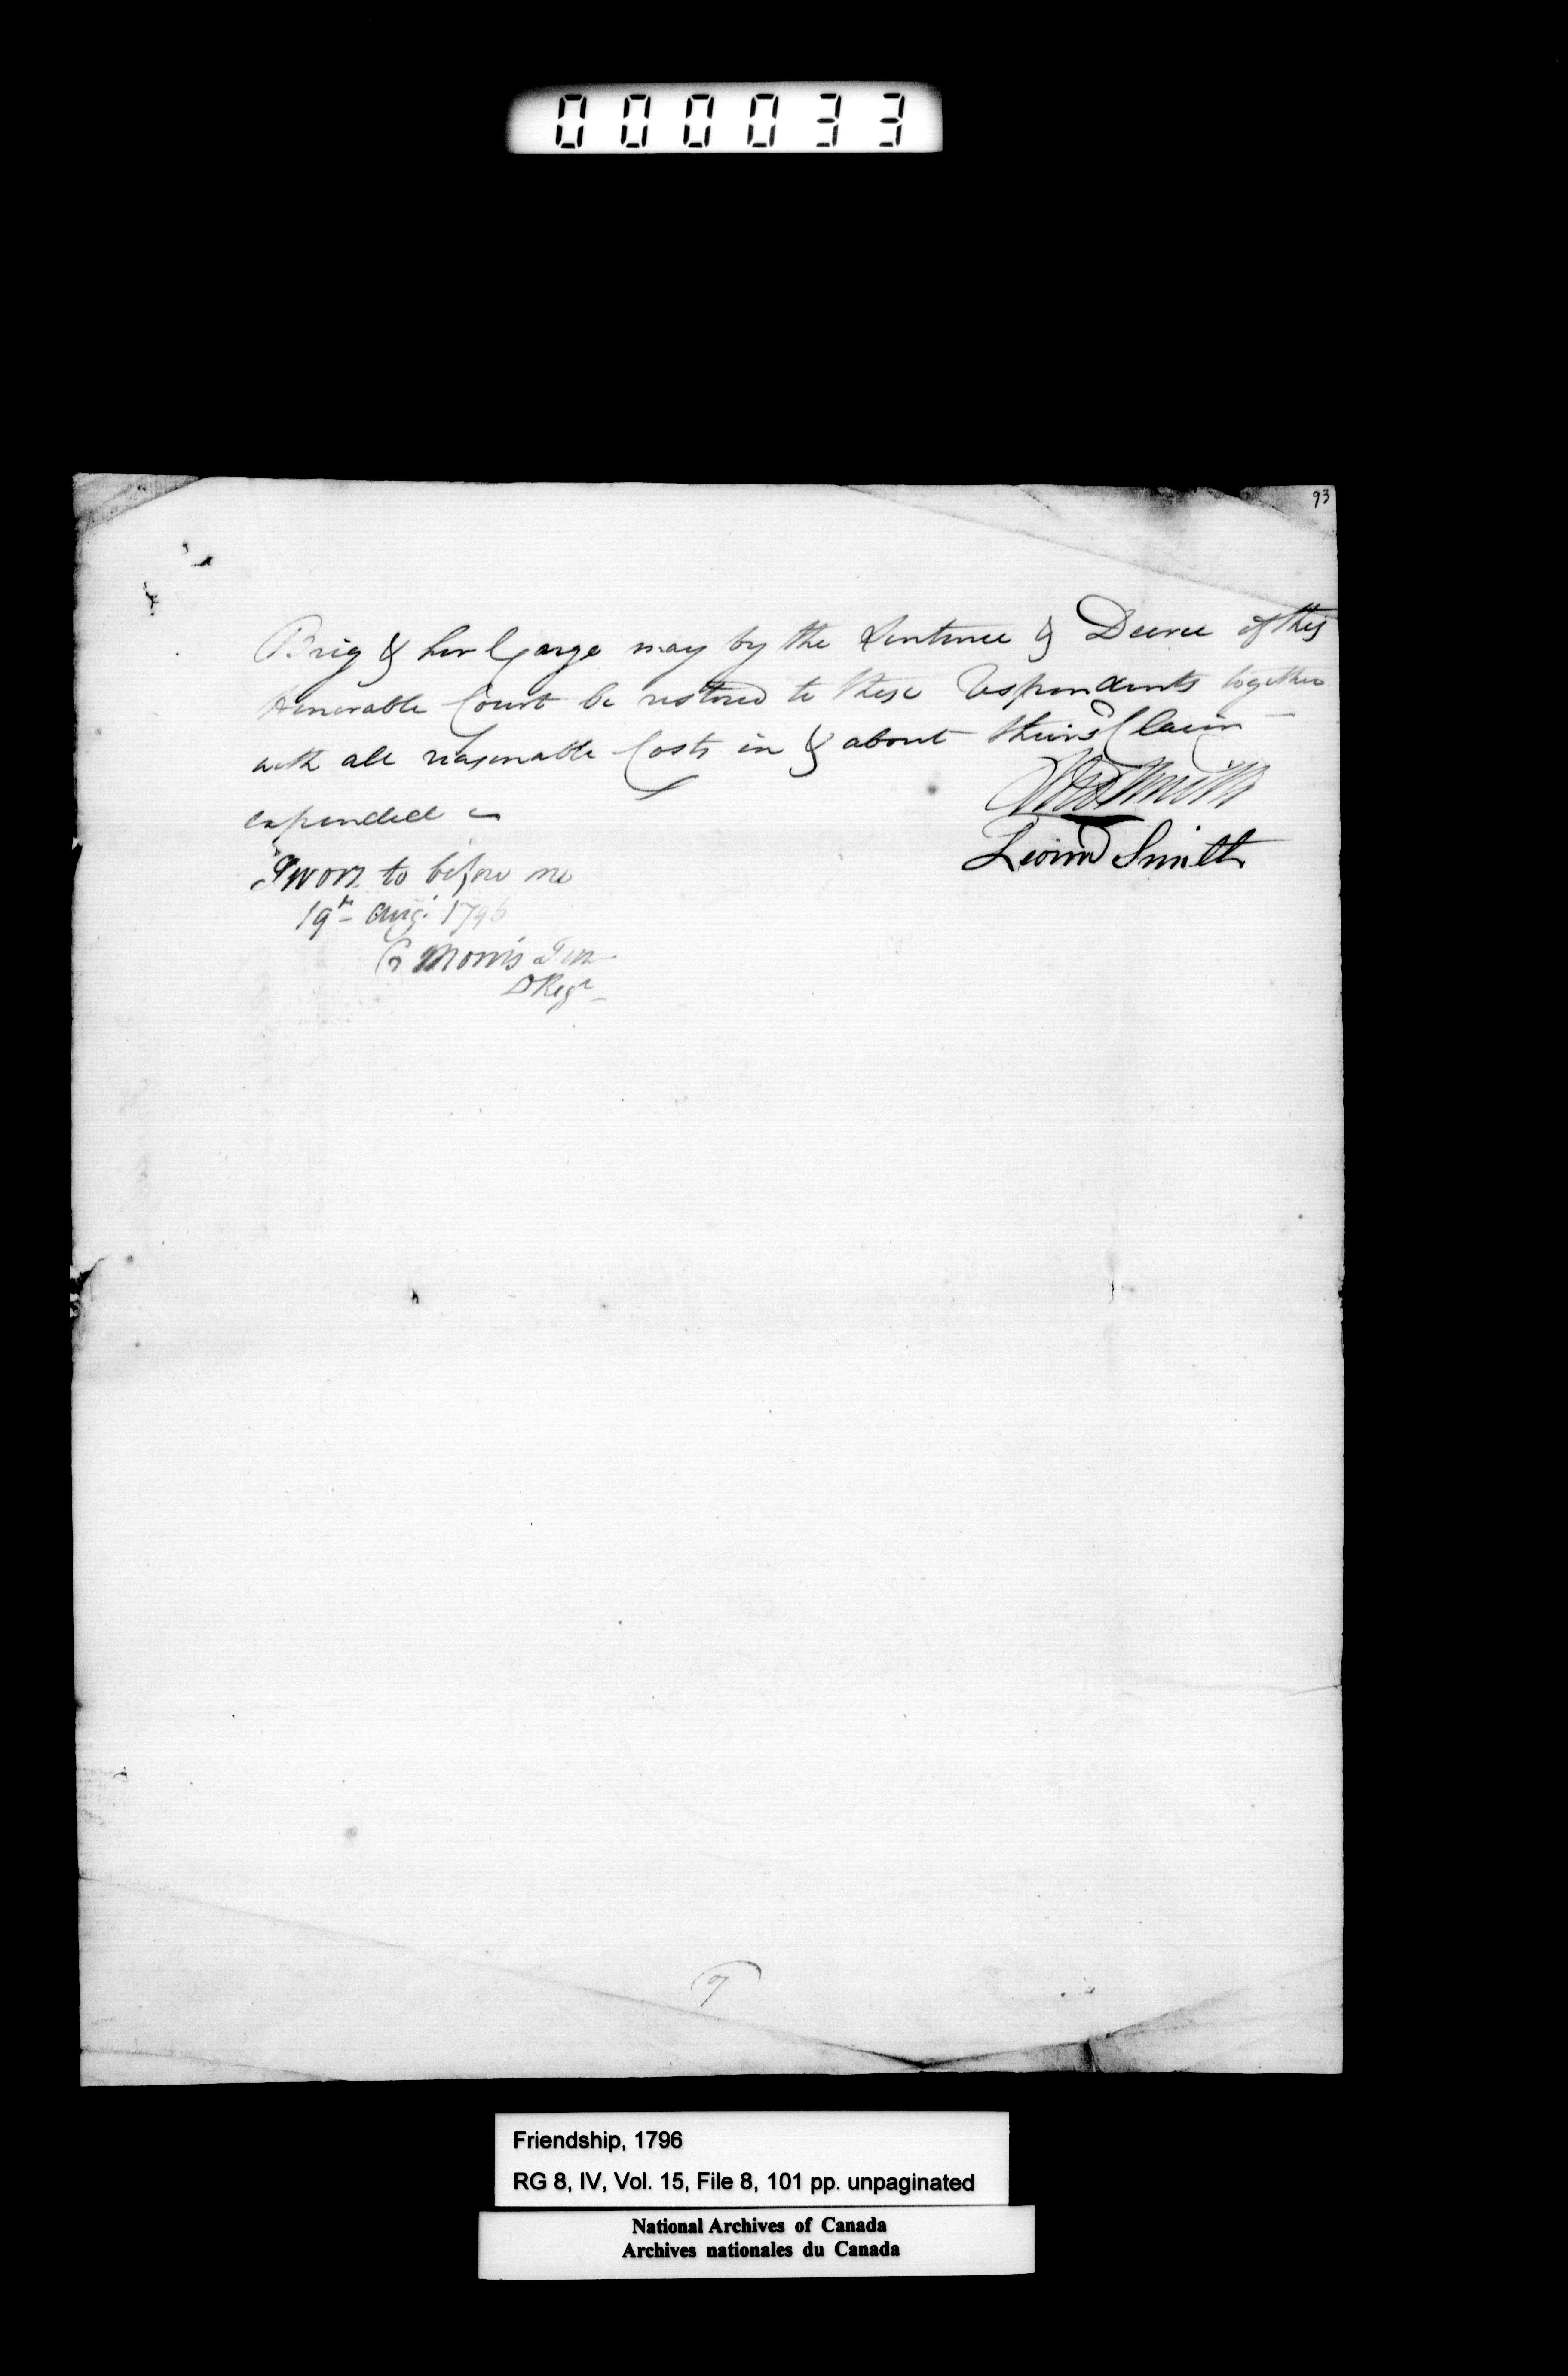 000033
93
Brig & her Cargo may by the Sentence & Decree of this
Honorable Court be restored to these Respondents together
with all reasonable Costs in & about their Claim
expended
Sworn to before me
19th Augt 1796
Smith
C Morris Jun
D Regr
Smith
7
Friendship, 1796
RG 8, IV, Vol. 15, File 8, 101 pp. unpaginated
National Archives of Canada
Archives nationales du Canada